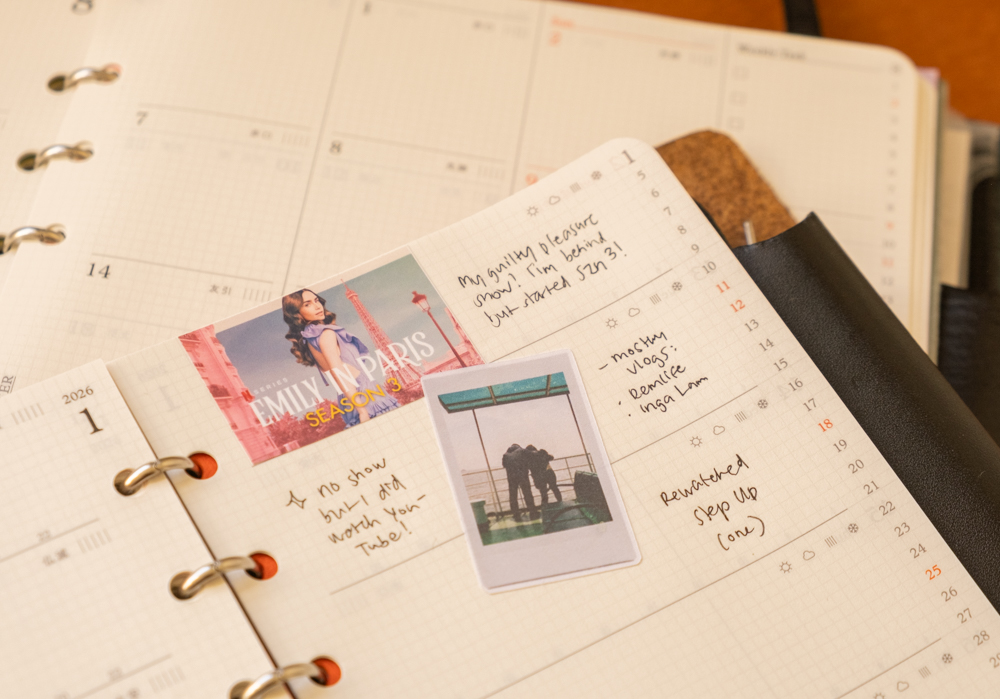 8
1
7
8
14
友引
2026
1
SERIES
EMILY IN PARIS
SEASON 3
My guilty pleasure
show! I'm behind
but started SZN 3!
no show
but I did
watch You-
Tube!
- mostly
vlogs:
• Remlife
• Inga Lam
Rewatched
Step Up
(one)
1
5
6
7
8
9
10
11
12
13
14
15
16
17
18
19
20
21
22
23
24
25
26
27
28